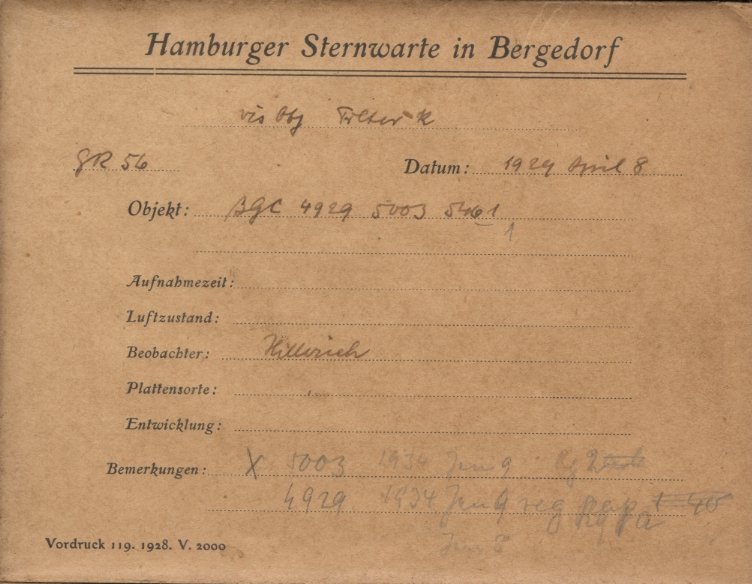 Hamburger Sternwarte in Bergedorf
vis Obj Filter K
GR 56
Datum: 1929 April 8
Objekt: BGC 4929 5003 5461
1
Aufnahmezeit:
Luftzustand:
Beobachter:
Plattensorte:
Entwicklung:
Bemerkungen: X 5003 1934 Jan 9
4929 1934 Jan 9
Jan 8
Vordruck 119. 1928. V. 2000